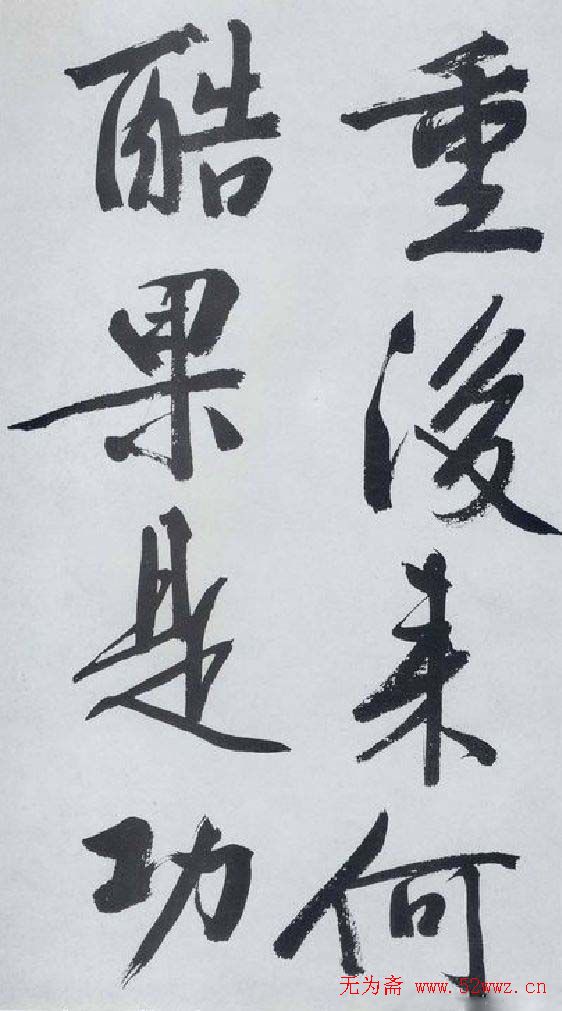 重後来何
酷果是功
无为斋 www.52wwz.cn